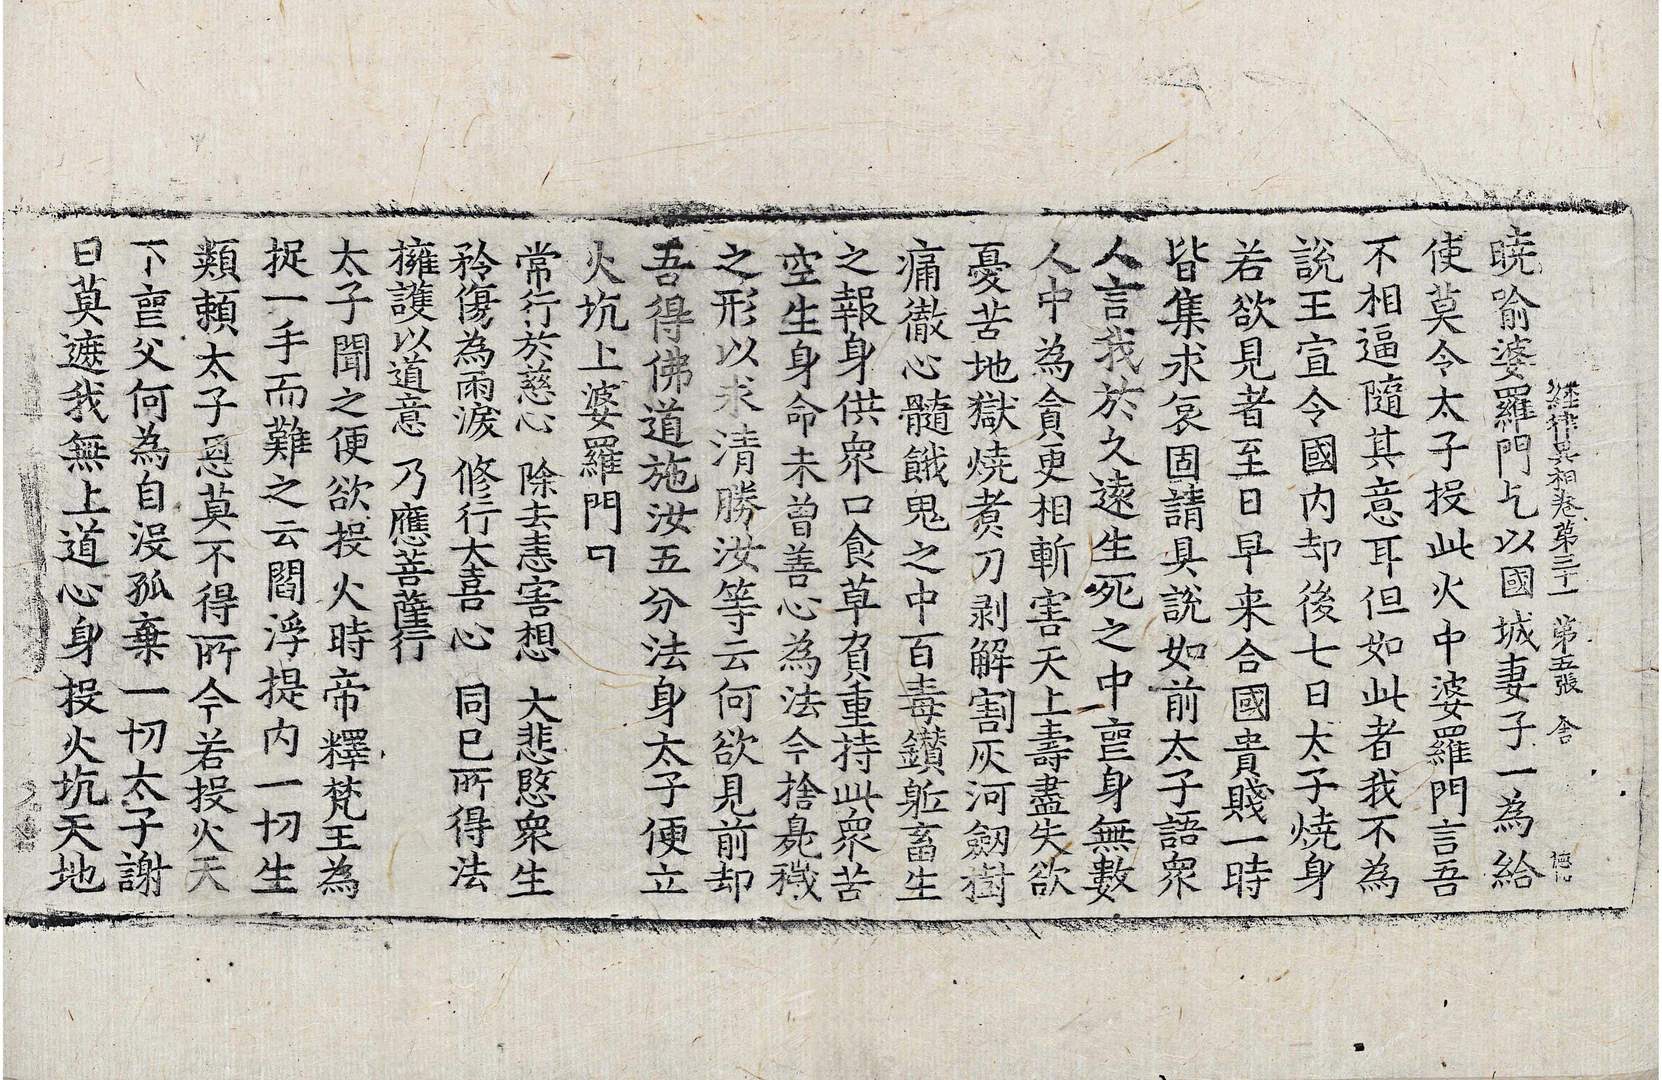 経律異相卷第三十一 第五張 舍
曉喻婆羅門乞以國城妻子一為給
使莫令太子投此火中婆羅門言吾
不相逼隨其意耳但如此者我不為
說王宣令國内却後七日太子燒身
若欲見者至日早来合國貴賤一時
皆集求哀固請具說如前太子語衆
人言我於久遠生死之中喪身無數
人中為貪更相斬害天上壽盡失欲
憂苦地獄燒煮刀剥解割灰河劔樹
痛徹心髓餓鬼之中百毒鑽軀畜生
之報身供衆口食草負重持此衆苦
空生身命未曽善心為法今捨臭穢
之形以求清勝汝等云何欲見前却
吾得佛道施汝五分法身太子便立
火坑上婆羅門曰
常行於慈心 除去恚害想 大悲愍衆生
矜傷為雨淚 修行大喜心 同已所得法
擁護以道意 乃應菩薩行
太子聞之便欲投火時帝釋梵王為
捉一手而難之云閻浮提内一切生
類賴太子恩莫不得所今若投火天
下喪父何為自没孤棄一切太子謝
曰莫遮我無上道心身投火坑天地